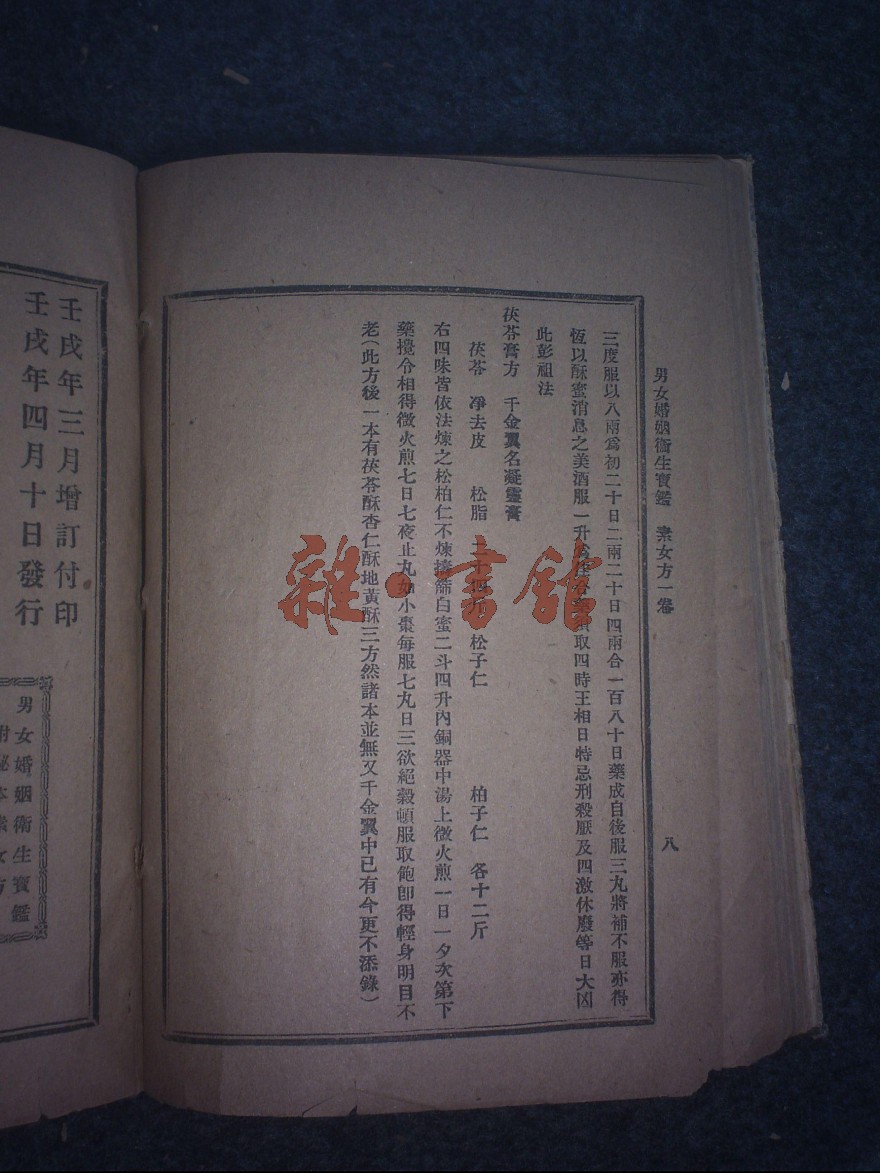 男女婚姻衞生寶鑑　素女方一卷
八
三度服以八兩爲初二十日二兩二十日四兩合一百八十日藥成自後服三丸將補不服亦得
恆以酥蜜消息之美酒服一升爲佳合 取四時王相日特忌刑殺厭及四激休廢等日大凶
此彭祖法
茯苓膏方　千金翼名凝靈膏
茯苓　淨去皮　松脂　二十四斤　松子仁　柏子仁　各十二斤
右四味皆依法煉之松柏仁不煉擣篩白蜜二斗四升內銅器中湯上微火煎一日一夕次第下
藥攪令相得微火煎七日七夜止丸如小棗每服七丸日三欲絕穀頓服取飽卽得輕身明目不
老(此方後一本有茯苓酥杏仁酥地黃酥三方然諸本並無又千金翼中已有今更不添錄)
壬戌年三月增訂付印
壬戌年四月十日發行
男女婚姻衞生寶鑑
附秘本素女方
雜·書館